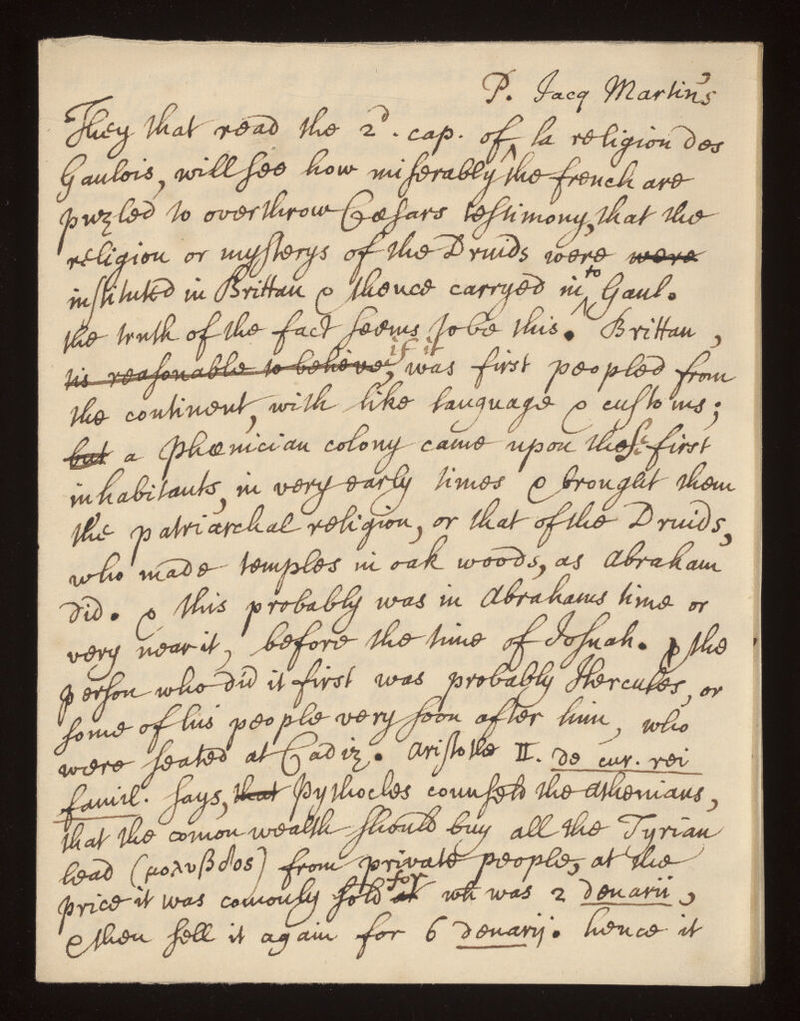 P. Jacq Martin's
They that read the 2d. cap. of la religion des
Gaulois, will see how miserably the french are
puzled to overthrow Cæsars testimony, that the
religion or mysterys of the Druids were were
instituted in Brittan & thence carryed into Gaul.
the truth of the fact seems to be this. Brittan,
tis reasonable to believe, if it was first peopled from
the continent, with like language & customs;
but a Phœnician colony came upon these first
inhabitants, in very early times & brought them
the patriarchal religion, or that of the Druids,
who made temples in oak woods, as Abraham
did. & this probably was in Abrahams time or
very near it, before the time of Joshuah. & the
person who did it first was probably Hercules, or
some of his people very soon after him, who
were seated at Cadiz. Aristotle II. de cur. rei
famil. says, that Pythocles counseld the Athenians,
that the comon wealth should buy all the Tyrian
lead (μολυβδος) from private people, at the
price it was comonly sold at for wh was 2 denarii,
& then sell it again for 6 denarij. hence it